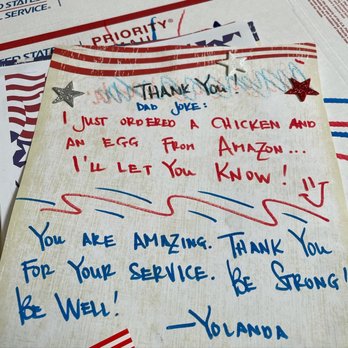 PRIORITY
UNITED STATES
POSTAL SERVICE.
THANK YOU!
DAD JOKE:
I JUST ORDERED A CHICKEN AND
AN EGG FROM AMAZON...
I'LL LET YOU KNOW!
YOU ARE AMAZING. THANK YOU
FOR YOUR SERVICE. BE STRONG!
BE WELL!
—YOLANDA